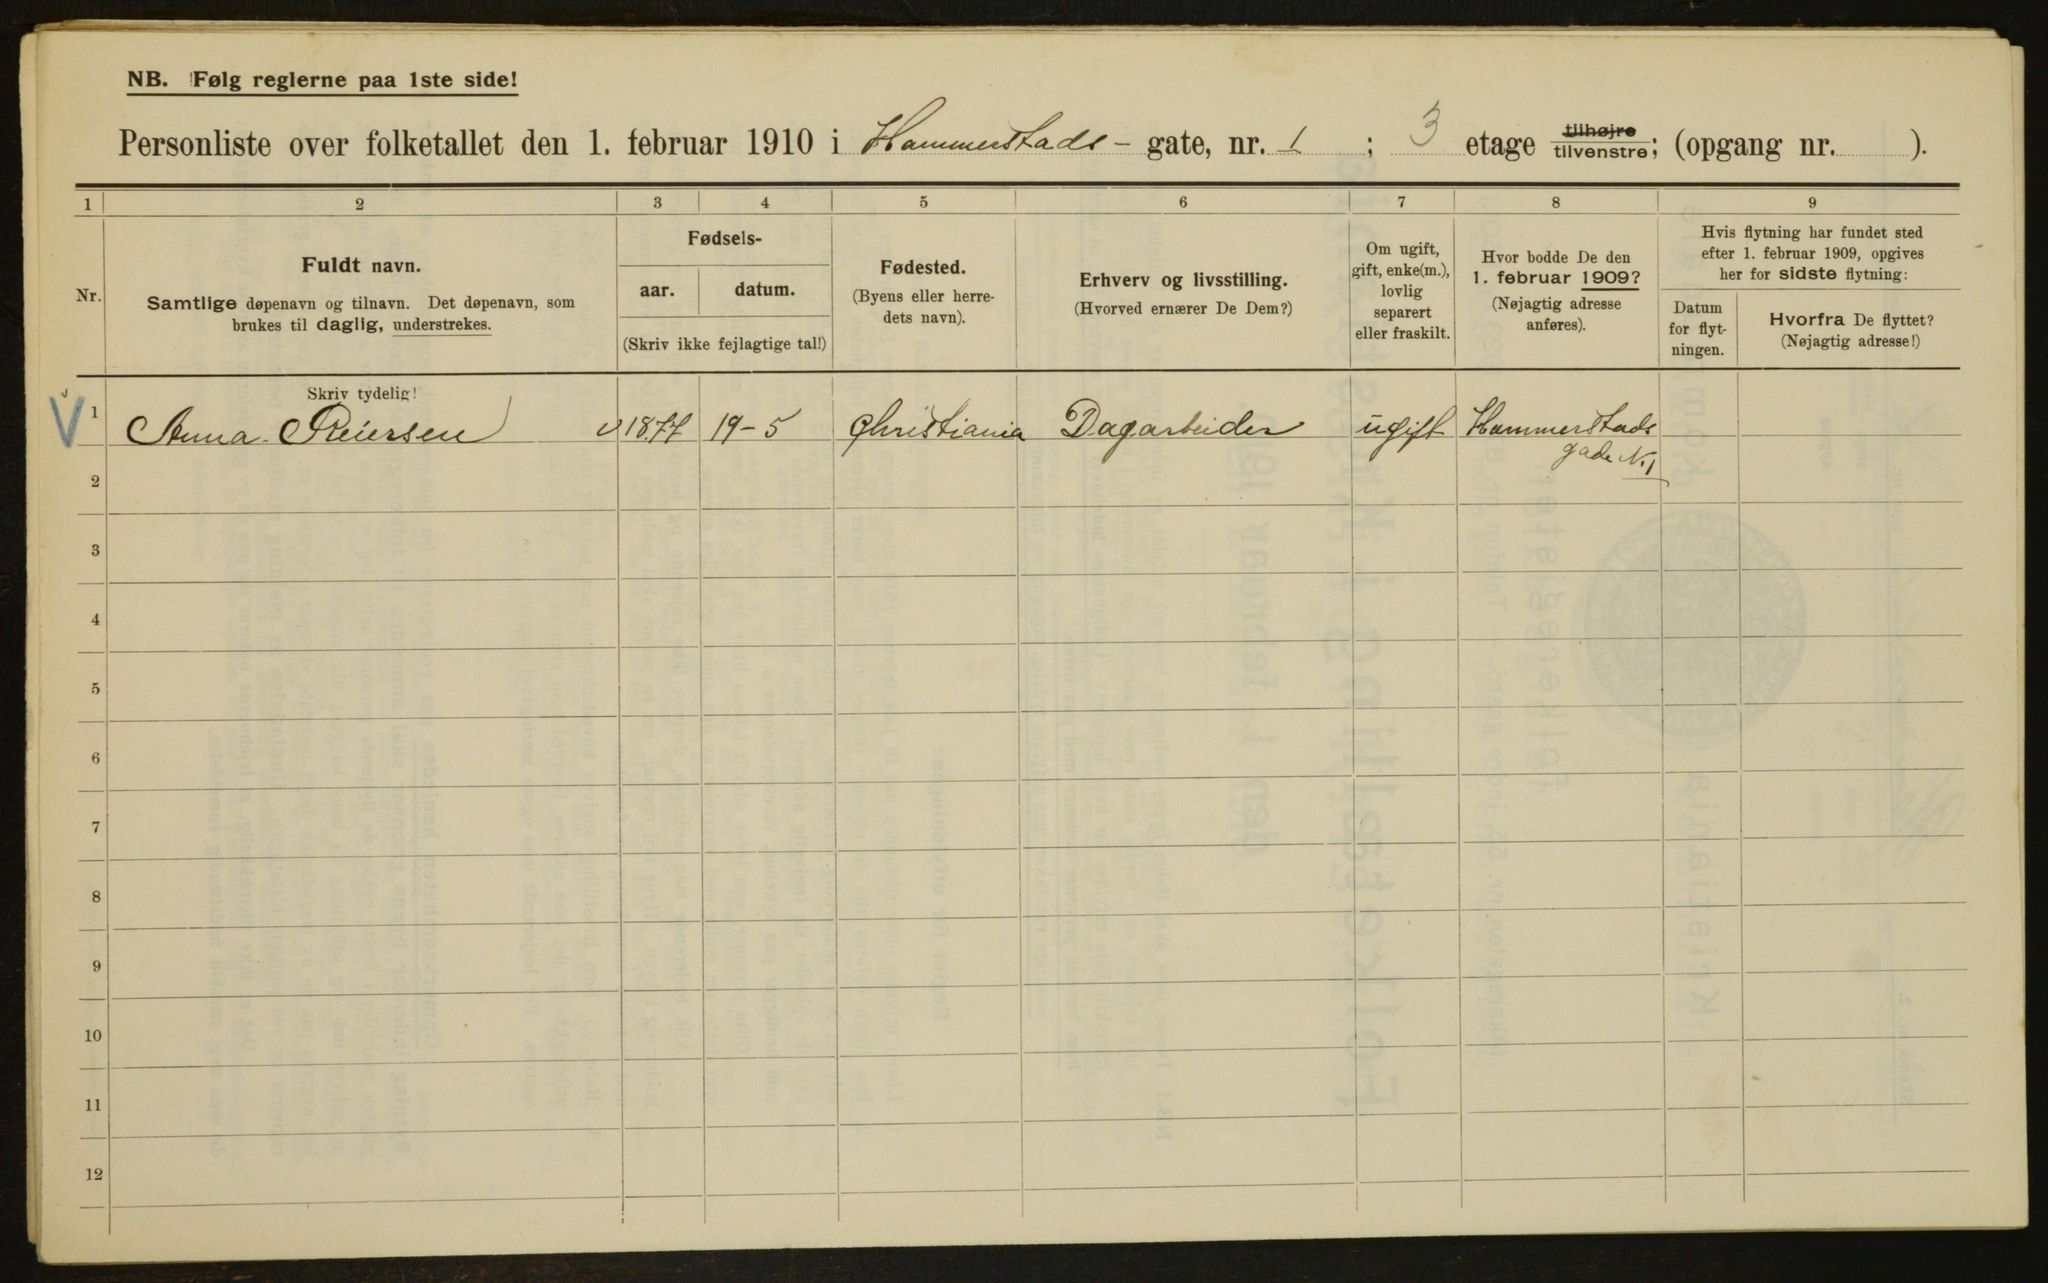 NB. Følg reglerne paa 1ste side!
Personliste over folketallet den 1. februar 1910 i Hammerstads- gate, nr. 1 ; 3 etage tilhøjre tilvenstre; (opgang nr. ).
1 2 3 4 5 6 7 8 9
Nr.
Fuldt navn.
Samtlige døpenavn og tilnavn. Det døpenavn, som
brukes til daglig, understrekes.
Fødsels-
aar. datum.
(Skriv ikke fejlagtige tal!)
Fødested.
(Byens eller herre-
dets navn).
Erhverv og livsstilling.
(Hvorved ernærer De Dem?)
Om ugift,
gift, enke(m.),
lovlig
separert
eller fraskilt.
Hvor bodde De den
1. februar 1909?
(Nøjagtig adresse
anføres).
Hvis flytning har fundet sted
efter 1. februar 1909, opgives
her for sidste flytning:
Datum
for flyt-
ningen.
Hvorfra De flyttet?
(Nøjagtig adresse!)
Skriv tydelig!
V 1 Anna Reiersen v 1877 19-5 Christiania Dagarbeider ugift Hammerstads
gade N. 1
2
3
4
5
6
7
8
9
10
11
12